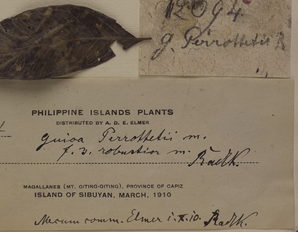 12094
G. Perrottetii R
PHILIPPINE ISLANDS PLANTS
DISTRIBUTED BY A. D. E. ELMER
Guioa Perrottetii m.
f. v. robustior m.
Radlk.
MAGALLANES (MT. GITING-GITING), PROVINCE OF CAPIZ
ISLAND OF SIBUYAN, MARCH, 1910
Mecum comm. Elmer i. X. 10. Radlk.